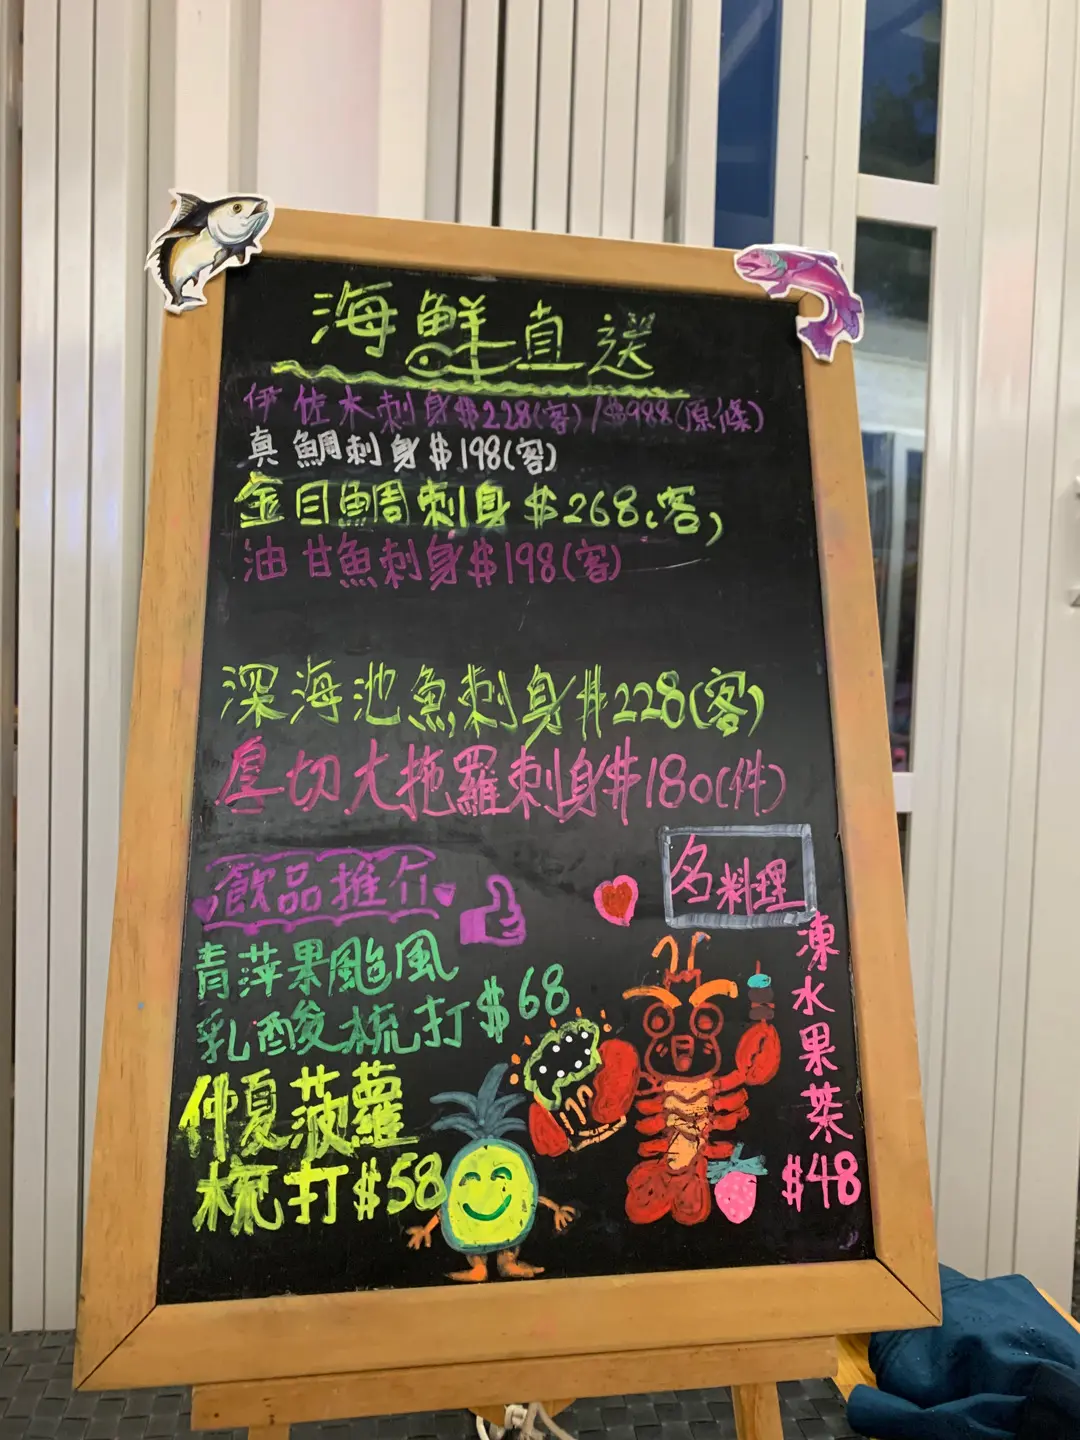 海鮮直送
伊佐木刺身$228(客)/$988(原條)
真鯛刺身$198(客)
金目鯛刺身$268(客)
油甘魚刺身$198(客)
深海池魚刺身$228(客)
厚切大拖羅刺身$180(件)
飲品推介
青萍果颱風
乳酸梳打$68
仲夏菠蘿
梳打$58
名料理
凍水果茶
$48